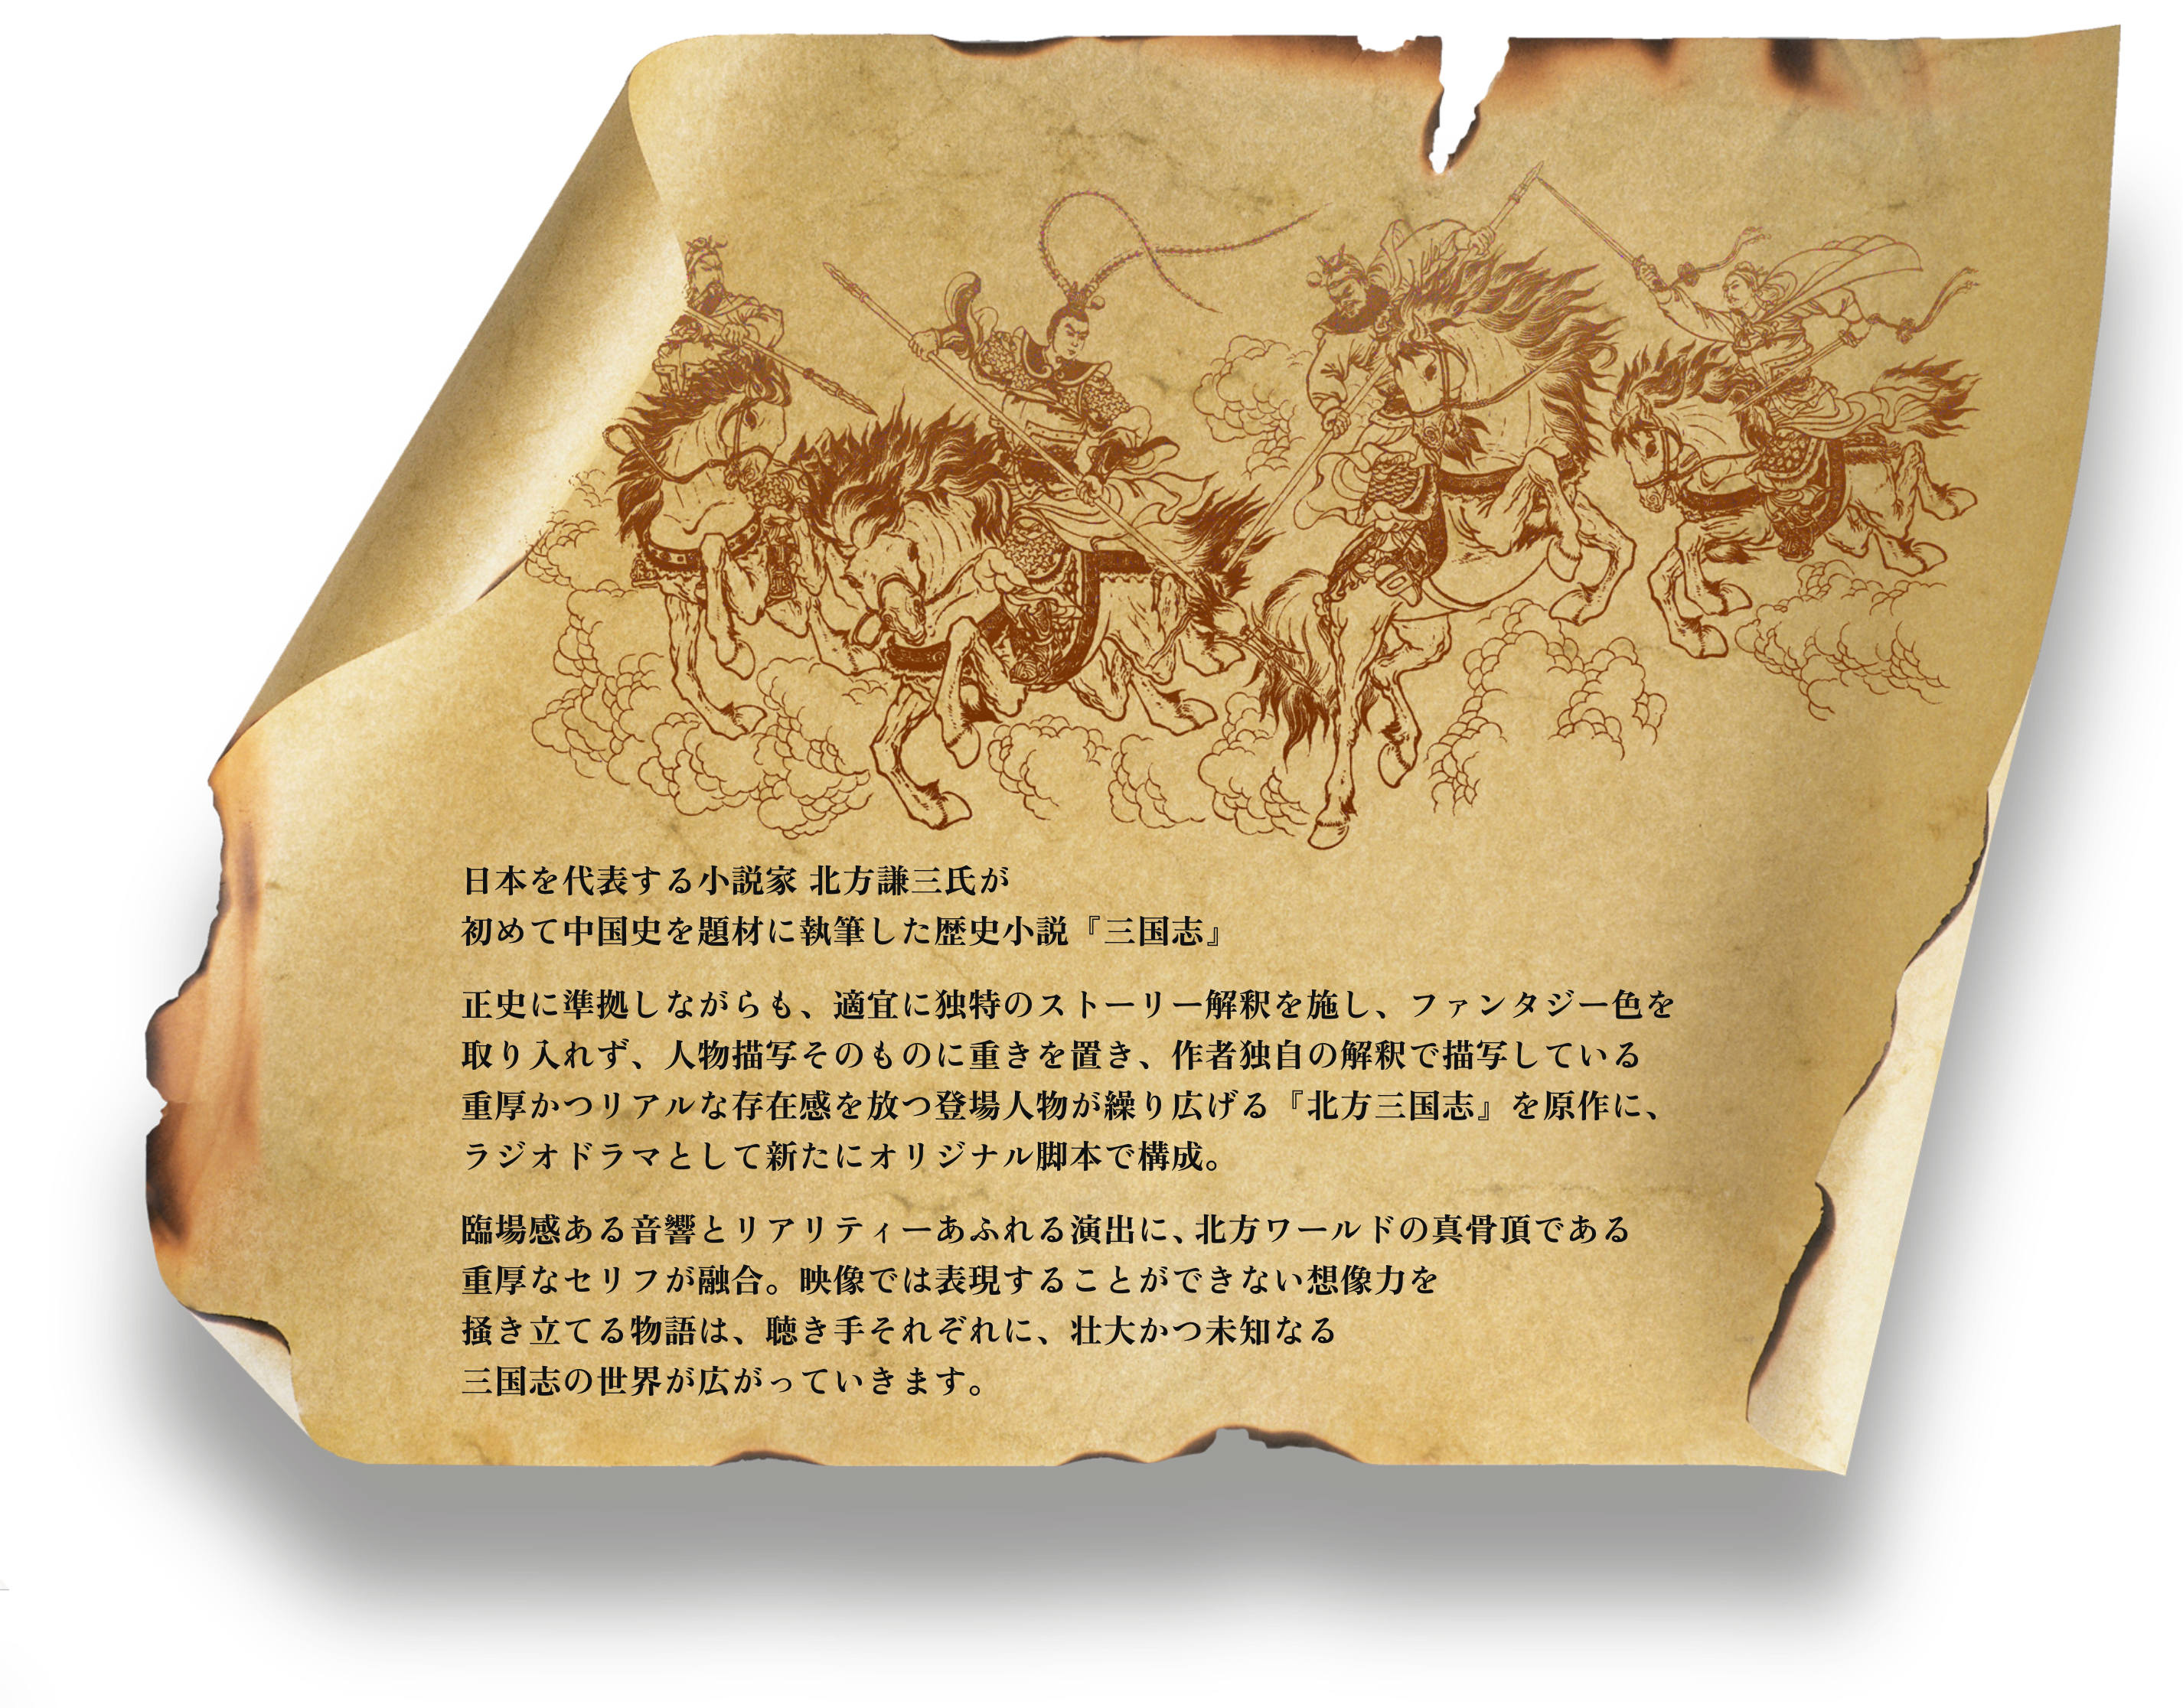 日本を代表する小説家 北方謙三氏が
初めて中国史を題材に執筆した歴史小説『三国志』
正史に準拠しながらも、適宜に独特のストーリー解釈を施し、ファンタジー色を
取り入れず、人物描写そのものに重きを置き、作者独自の解釈で描写している
重厚かつリアルな存在感を放つ登場人物が繰り広げる『北方三国志』を原作に、
ラジオドラマとして新たにオリジナル脚本で構成。
臨場感ある音響とリアリティーあふれる演出に、北方ワールドの真骨頂である
重厚なセリフが融合。映像では表現することができない想像力を
掻き立てる物語は、聴き手それぞれに、壮大かつ未知なる
三国志の世界が広がっていきます。